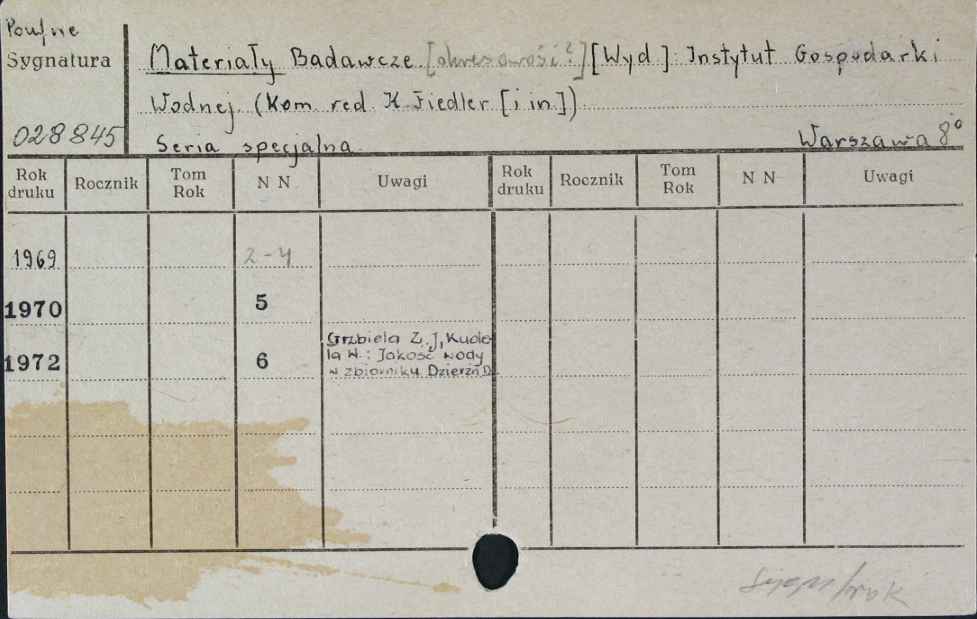 Poufne
Sygnatura
Materiały Badawcze [okresowość?] [Wyd.] Instytut Gospodarki
Wodnej. (Kom. red. K. Fiedler [i in.])
028845
Seria specjalna. Warszawa 8°
Rok druku Rocznik Tom Rok N N Uwagi Rok druku Rocznik Tom Rok N N Uwagi
1969 2-4
1970 5
1972 6
Grzbiela Z. J, Kude
la W.: Jakość wody
w zbiorniku Dzierżn D.